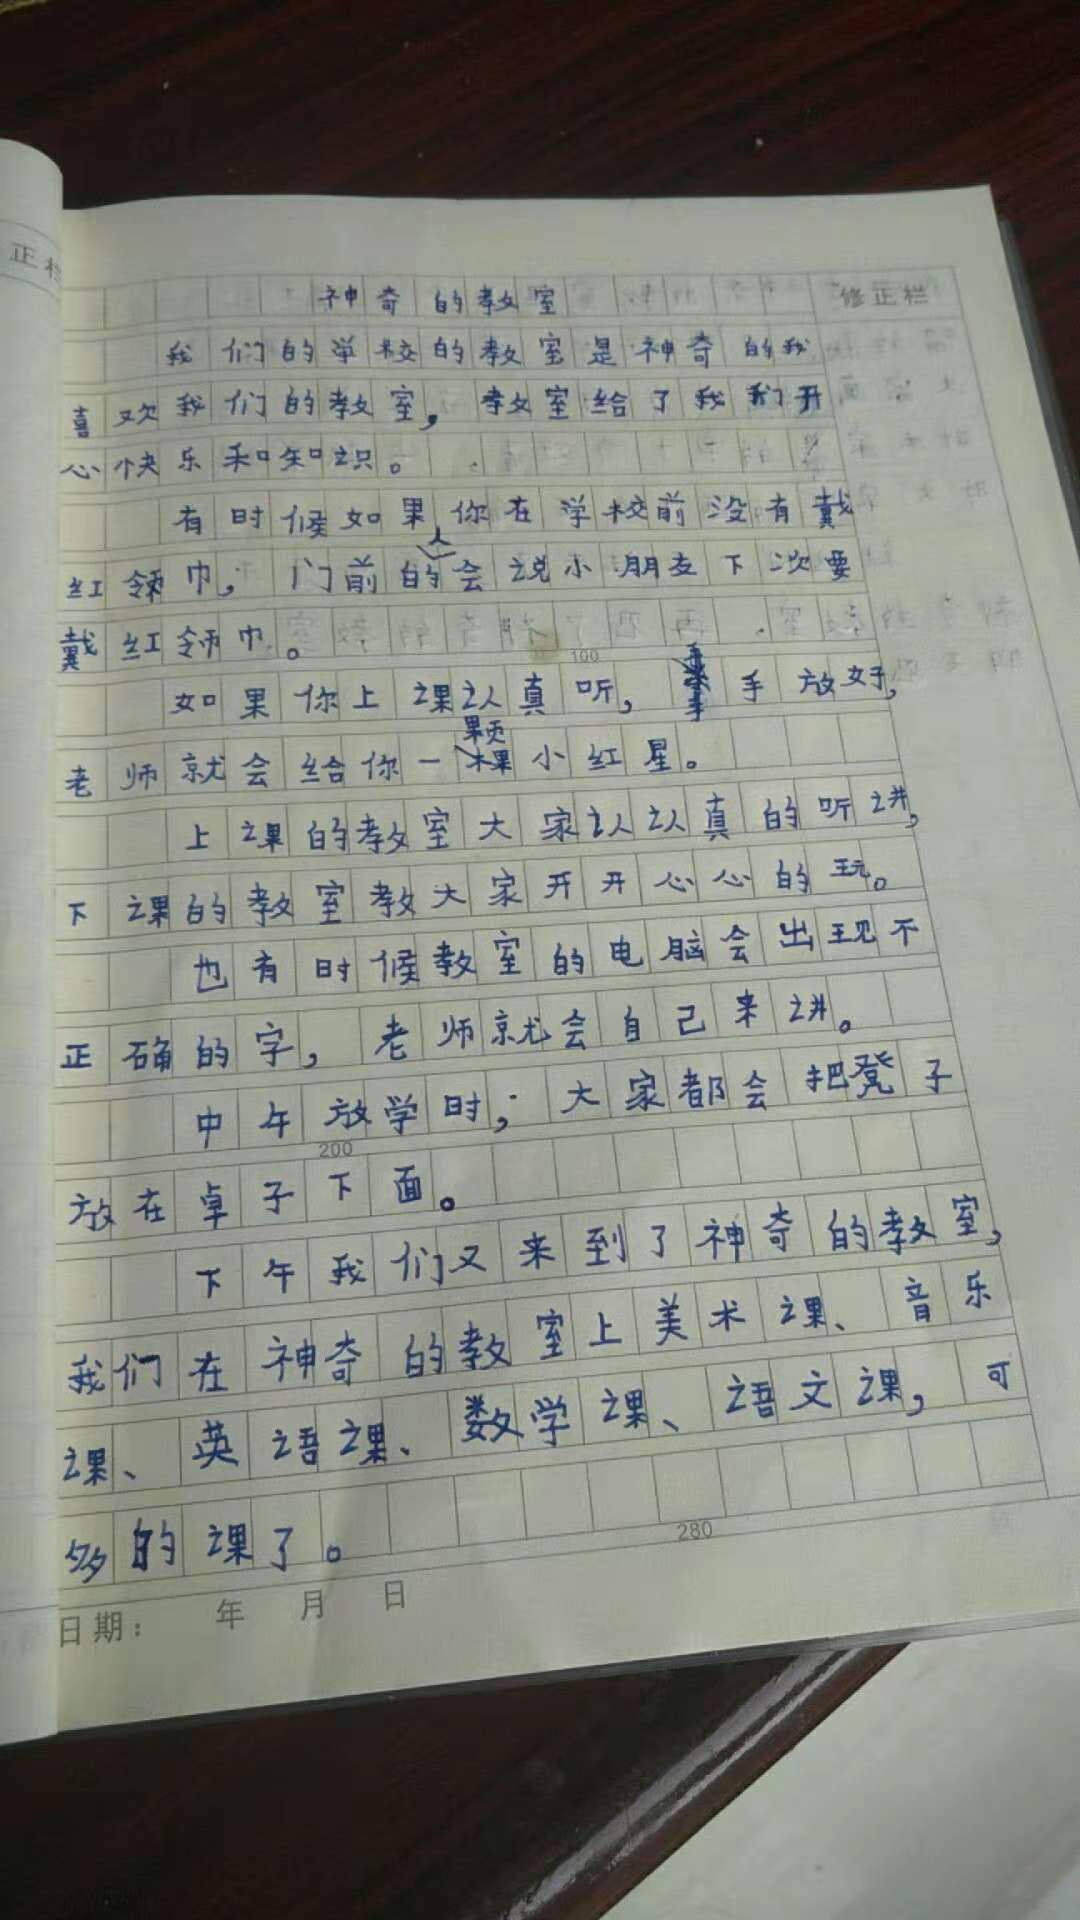 正栏
神奇的教室
修正栏
我们的学校的教室是神奇的我
喜欢我们的教室,教室给了我们开
心快乐和知识。
有时候如果,你在学校前没有戴
红领巾,门前的人会说小朋友下次要
戴红领巾。
100
如果你上课认真听,手放好,
老师就会给你一颗小红星。
上课的教室大家认认真的听讲,
下课的教室教大家开开心心的玩。
也有时候教室的电脑会出现不
正确的字,老师就会自己来讲。
中午放学时,大家都会把凳子
200
放在卓子下面。
下午我们又来到了神奇的教室,
我们在神奇的教室上美术课、音乐
课、英语课、数学课、语文课,可
多的课了。
280
日期: 年 月 日